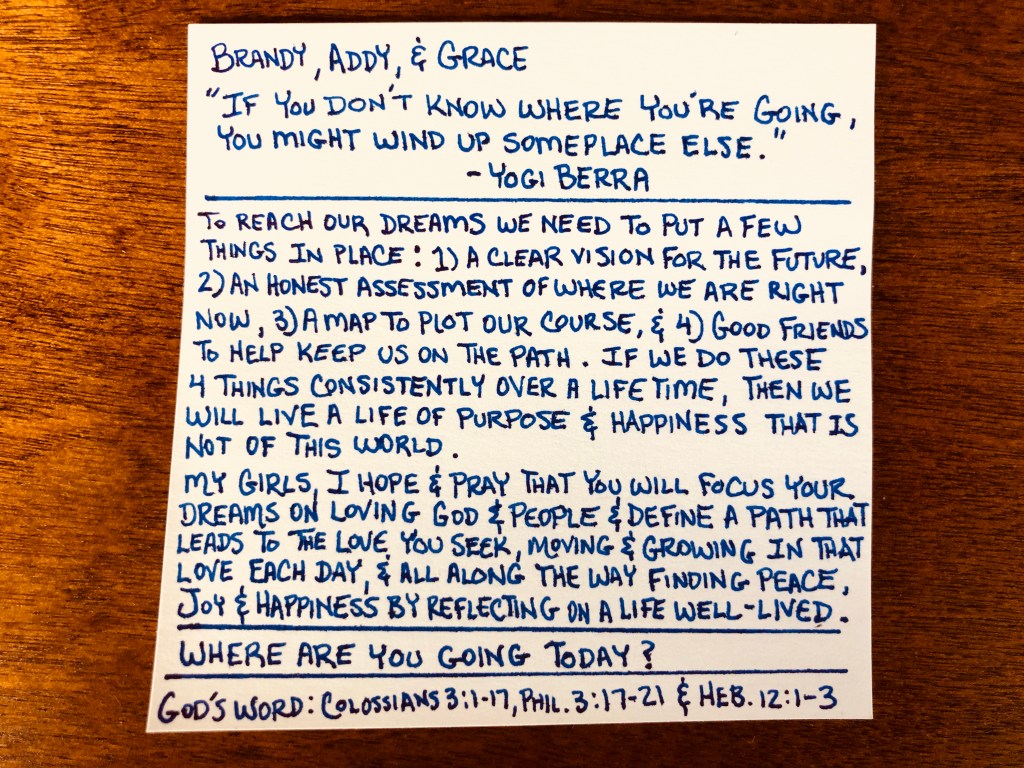 BRANDY, ADDY, & GRACE
"IF YOU DON'T KNOW WHERE YOU'RE GOING,
YOU MIGHT WIND UP SOMEPLACE ELSE."
- YOGI BERRA
TO REACH OUR DREAMS WE NEED TO PUT A FEW
THINGS IN PLACE: 1) A CLEAR VISION FOR THE FUTURE,
2) AN HONEST ASSESSMENT OF WHERE WE ARE RIGHT
NOW, 3) A MAP TO PLOT OUR COURSE, & 4) GOOD FRIENDS
TO HELP KEEP US ON THE PATH. IF WE DO THESE
4 THINGS CONSISTENTLY OVER A LIFE TIME, THEN WE
WILL LIVE A LIFE OF PURPOSE & HAPPINESS THAT IS
NOT OF THIS WORLD.
MY GIRLS, I HOPE & PRAY THAT YOU WILL FOCUS YOUR
DREAMS ON LOVING GOD & PEOPLE & DEFINE A PATH THAT
LEADS TO THE LOVE YOU SEEK, MOVING & GROWING IN THAT
LOVE EACH DAY, & ALL ALONG THE WAY FINDING PEACE,
JOY & HAPPINESS BY REFLECTING ON A LIFE WELL-LIVED.
WHERE ARE YOU GOING TODAY?
GOD'S WORD: COLOSSIANS 3:1-17, PHIL. 3:17-21 & HEB. 12:1-3